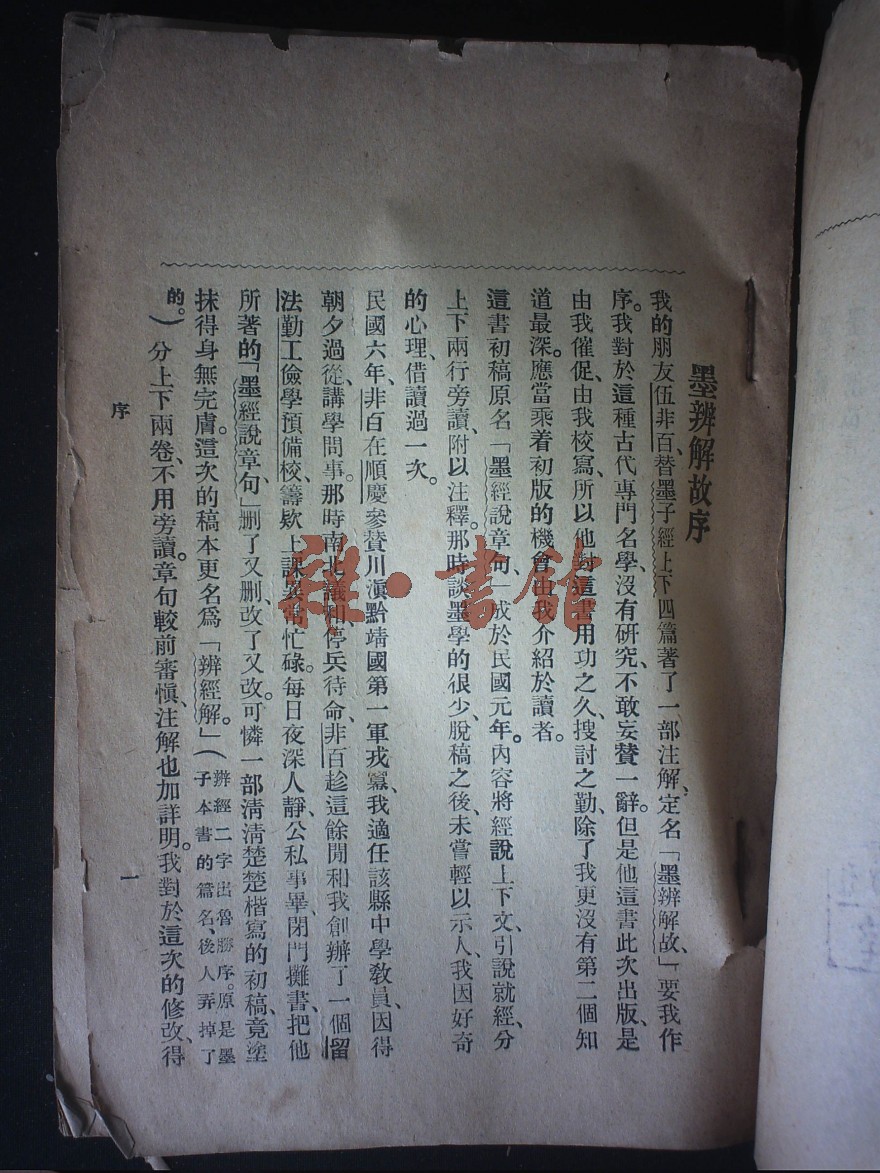 墨辨解故序
我的朋友伍非百、替墨子經上下四篇著了一部注解、定名「墨辨解故、」要我作
序。我對於這種古代專門名學、沒有研究、不敢妄贊一辭。但是他這書此次出版、是
由我催促、由我校寫、所以他對這書用功之久、搜討之勤、除了我更沒有第二個知
道最深。應當乘着初版的機會由我介紹於讀者。
這書初稿原名「墨經說章句、」成於民國元年。內容將經說上下文、引說就經、分
上下兩行旁讀、附以注釋。那時談墨學的很少、脫稿之後、未嘗輕以示人、我因好奇
的心理、借讀過一次。
民國六年、非百在順慶參贊川滇黔靖國第一軍戎幕、我適任該縣中學教員、因得
朝夕過從、講學問事。那時南北議和、停兵待命、非百趁這餘閒和我創辦了一個留
法勤工儉學預備校、籌欵上課、異常忙碌。每日夜深人靜、公私事畢、閉門攤書、把他
所著的「墨經說章句」刪了又刪改了又改。可憐一部清清楚楚楷寫的初稿、竟塗
抹得身無完膚。這次的稿本更名爲「辨經解。」(辨經二字出魯勝序。原是墨
子本書的篇名、後人弄掉了
的。)分上下兩卷、不用旁讀。章句較前審愼、注解也加詳明。我對於這次的修改、得
序
一
雜·書館